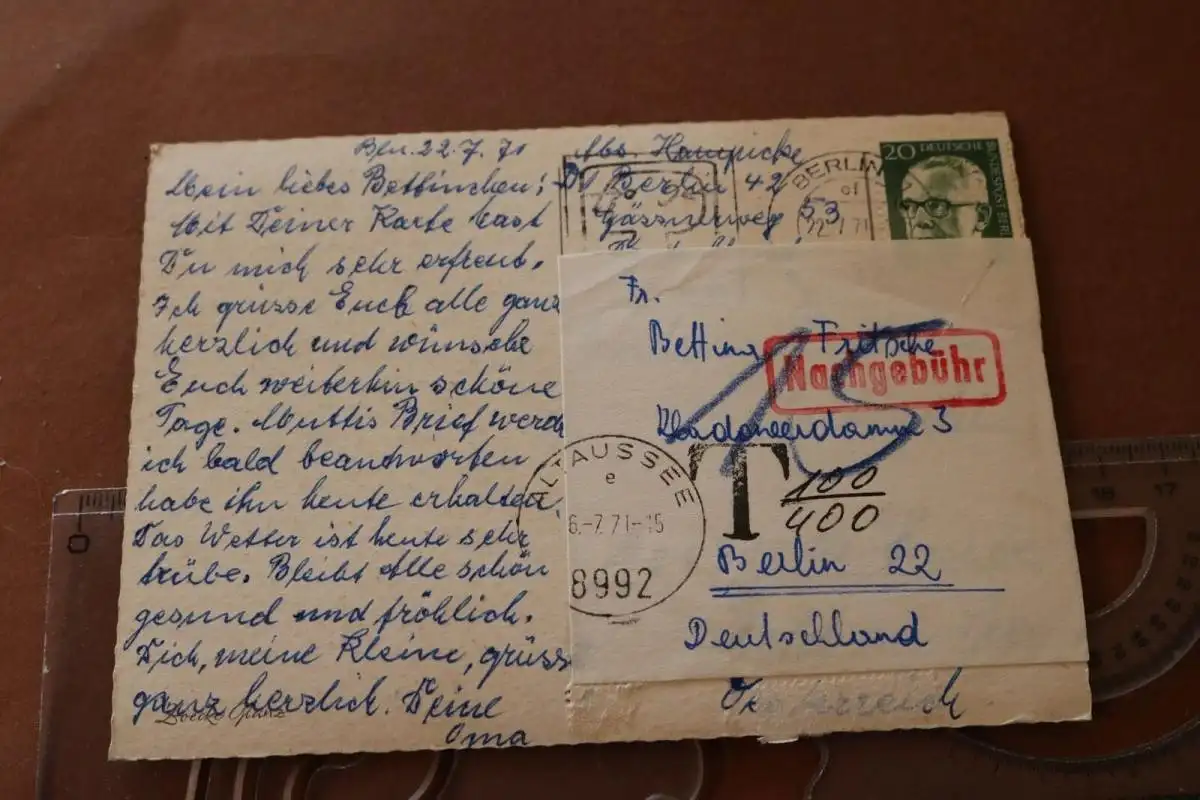 Bln. 22.7.71
Mein liebes Bettinchen!
Mit Deiner Karte hast
Du mich sehr erfreut.
Ich grüsse Euch alle ganz
herzlich und wünsche
Euch weiterhin schöne
Tage. Muttis Brief werd
ich bald beantworten
habe ihn heute erhalten.
Das Wetter ist heute sehr
trübe. Bleibt Alle schön
gesund und fröhlich.
Dich, meine Kleine, grüss
ganz herzlich. Deine
Oma
Abs. Hampicke
D1 Berlin 42
Gässnerweg 53
BERLIN
22.7.71
20 DEUTSCHE
BUNDESPOST BERLIN
Fr.
Bettina Fritsche
Nachgebühr
Kladowerdamm 3
T 100
400
Berlin 22
Deutschland
ALTAUSSEE
e
6.-7.71-15
8992
Österreich